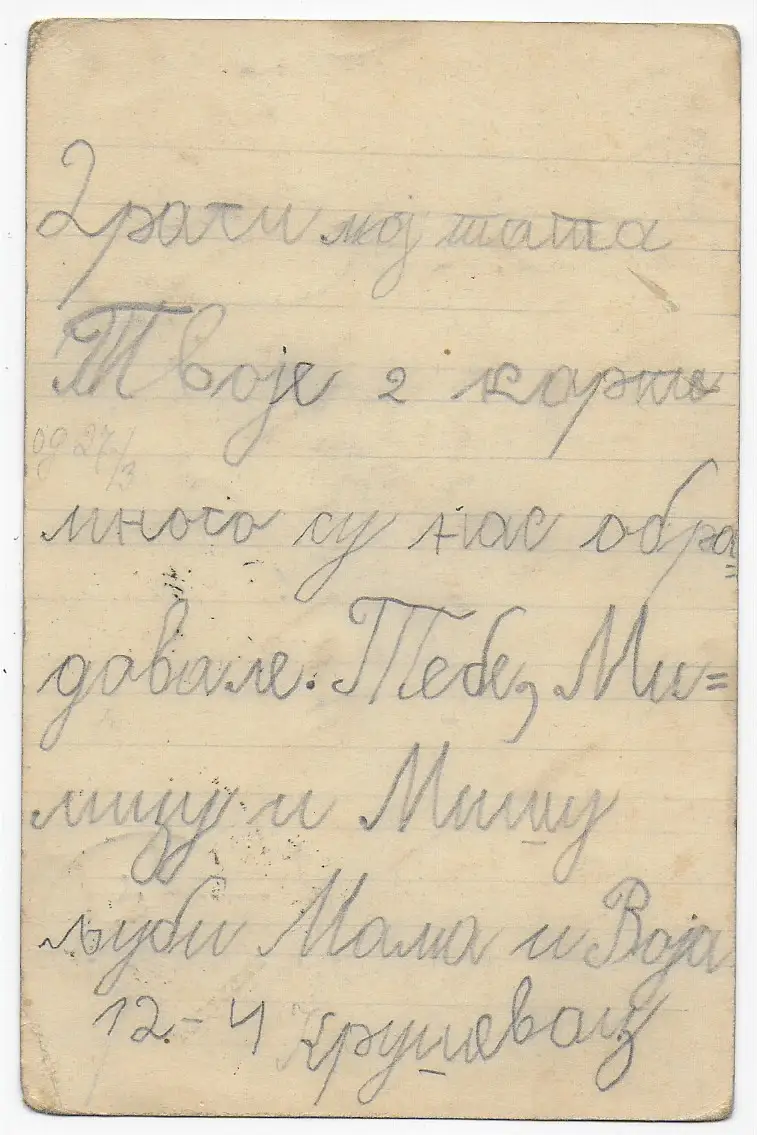 Драги мој тата
Твоје 2 карте
од 27/3
много су нас обра=
довале. Тебе, Ми=
лицу и Мишу
љуби Мама и Воја
12.-4 Крушевац